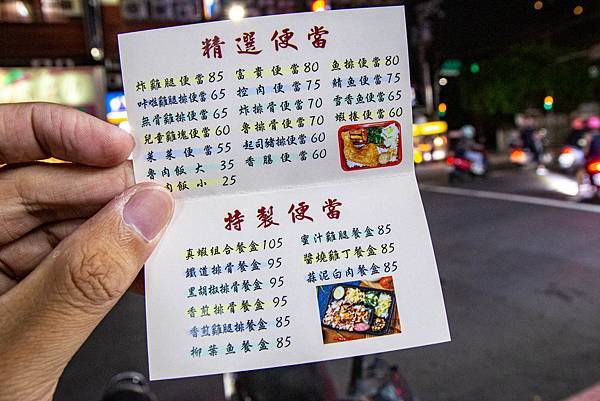 精選便當
炸雞腿便當85
咔啦雞腿排便當65
無骨雞排便當65
兒童雞塊便當60
菜菜便當55
魯肉飯大35
肉飯小25
富貴便當80
控肉便當75
炸排骨便當70
魯排骨便當70
起司豬排便當60
香腸便當60
魚排便當80
鯖魚便當75
雪香魚便當65
蝦捲便當60
特製便當
真蝦組合餐盒105
鐵道排骨餐盒95
黑胡椒排骨餐盒95
香煎排骨餐盒95
香煎雞腿排餐盒85
柳葉魚餐盒85
蜜汁雞腿餐盒85
醬燒雞丁餐盒85
蒜泥白肉餐盒85